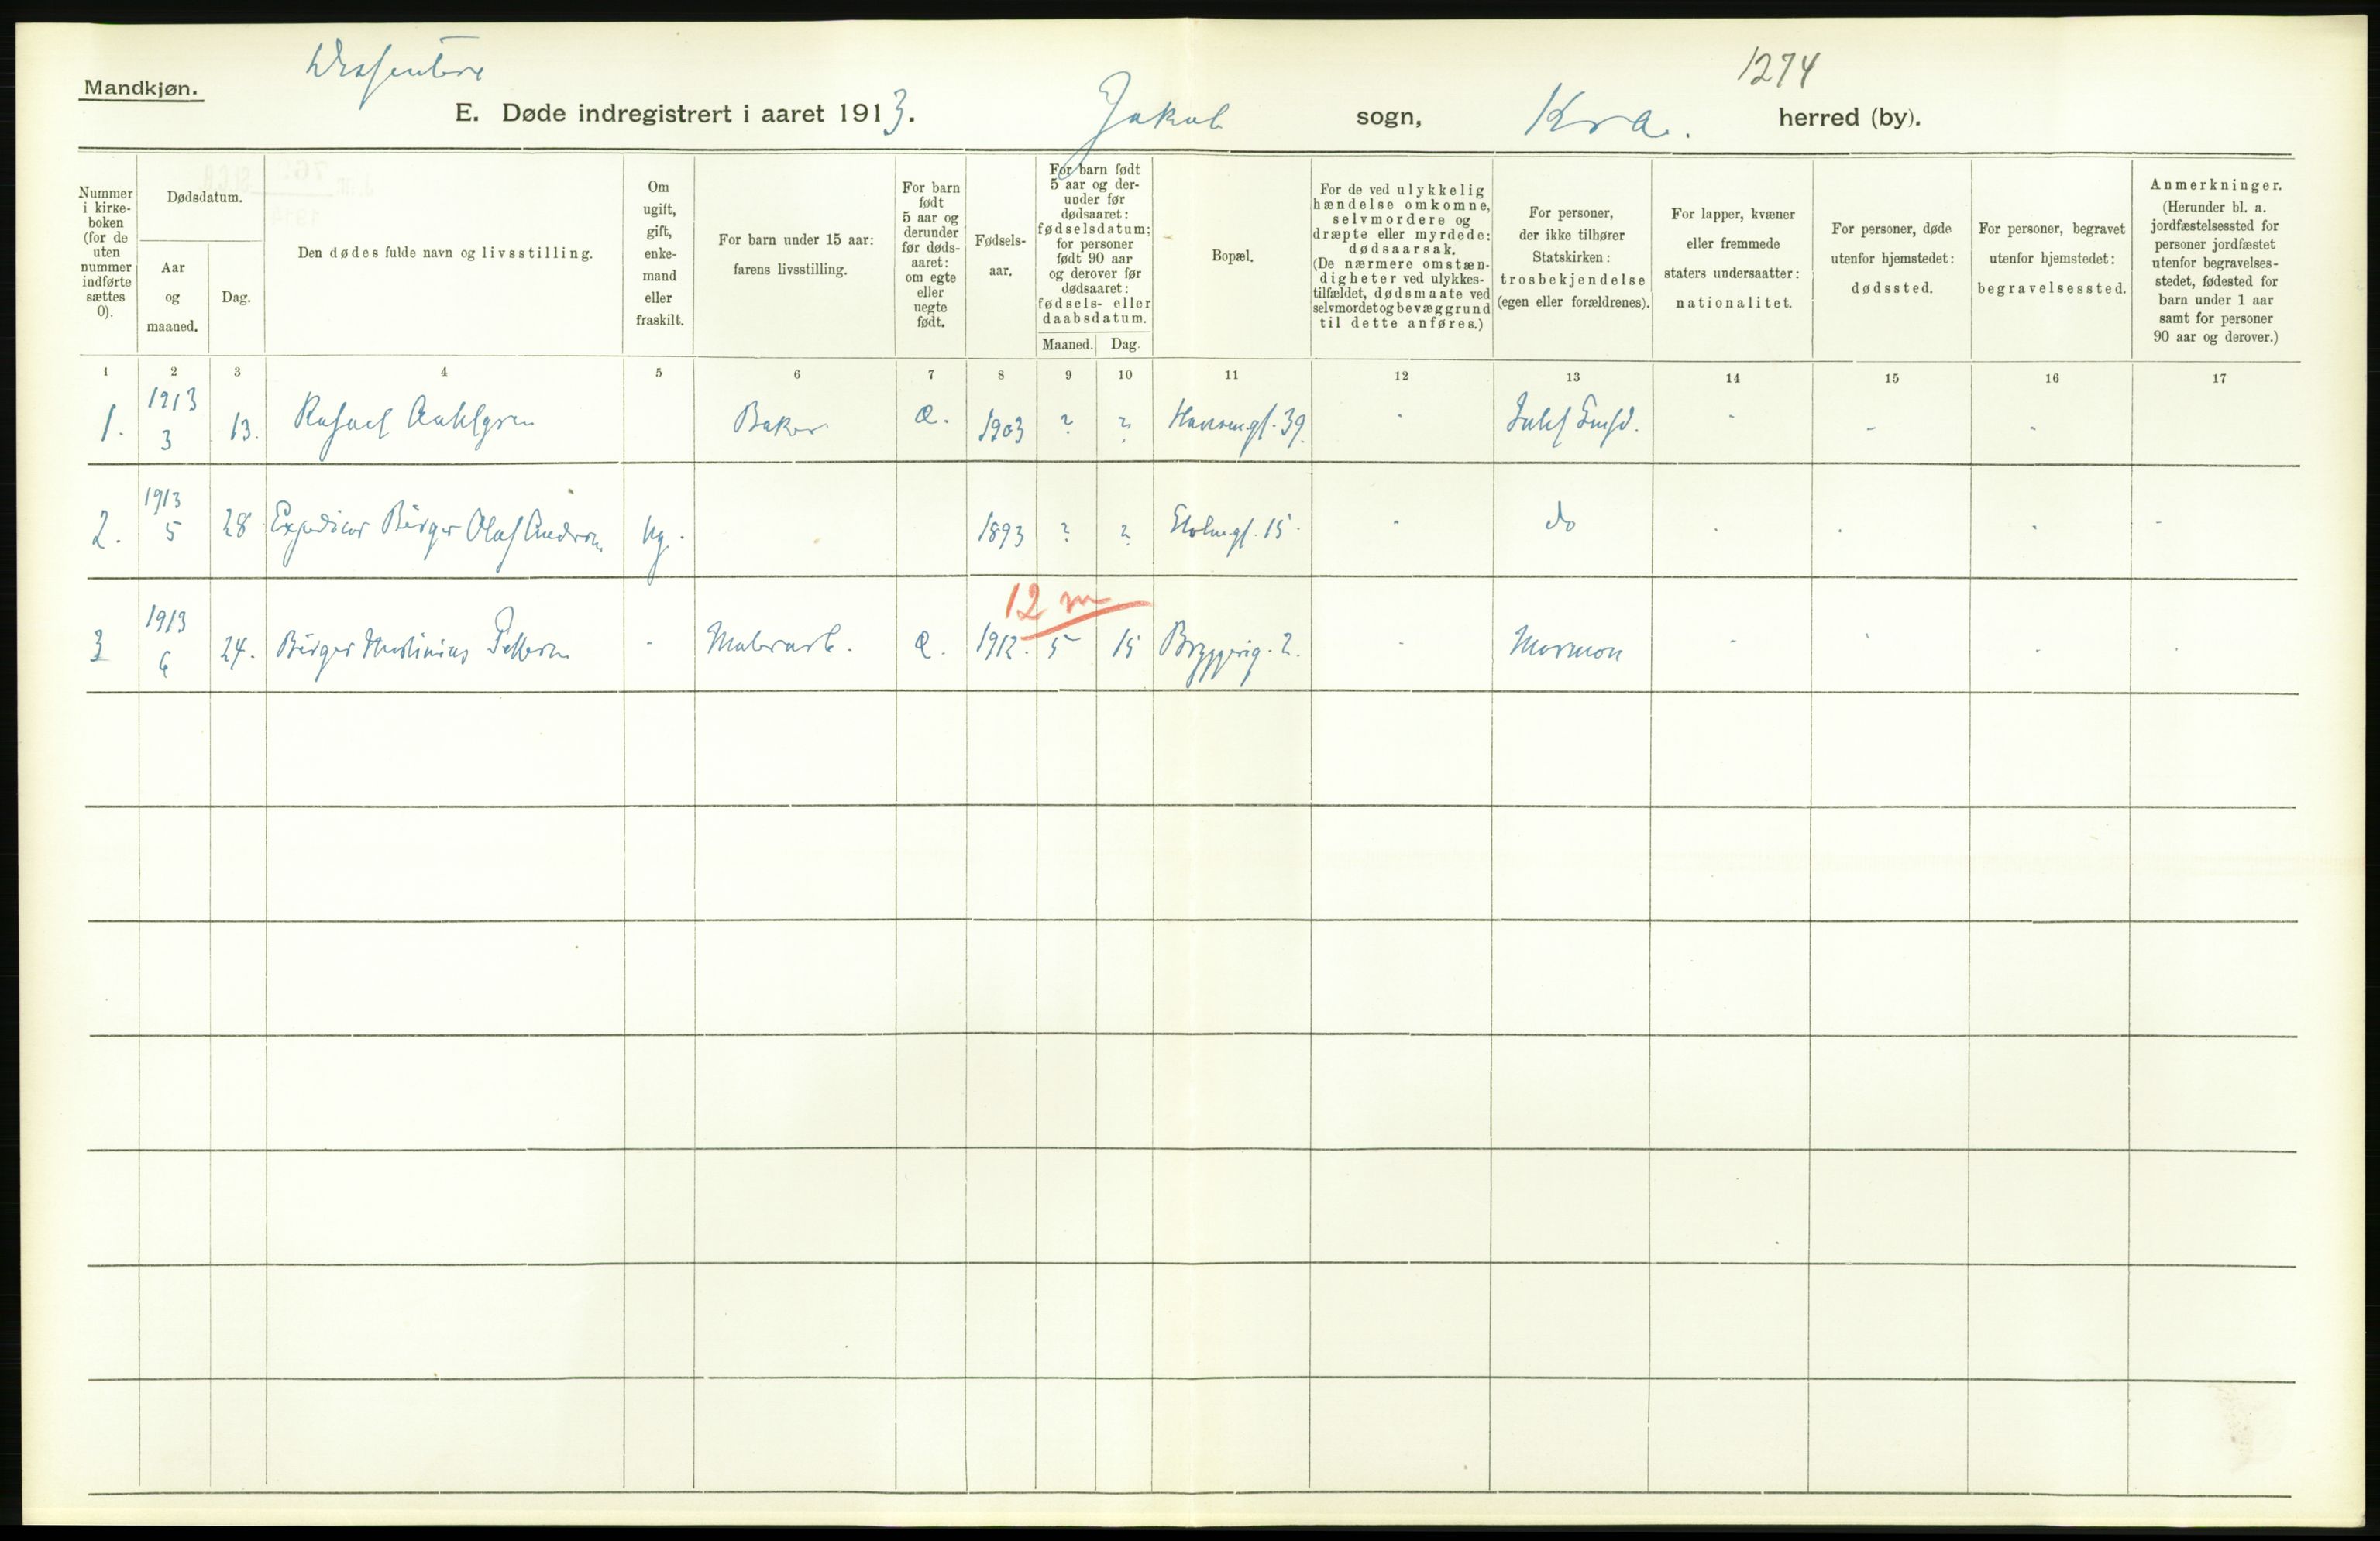 Mandkjøn.
1274
E. Døde indregistrert i aaret 1913. Jakob sogn, Kra. herred (by).
Nummer i kirke-
boken
(for de
uten
nummer
indførte
sættes
0).
Dødsdatum.
Aar
og
maaned.
Dag.
Den dødes fulde navn og livsstilling.
Om
ugift,
gift,
enke-
mand
eller
fraskilt.
For barn under 15 aar:
farens livsstilling.
For barn
født
5 aar og
derunder
før døds-
aaret:
om egte
eller
uegte
født.
Fødsels-
aar.
For barn født
5 aar og der-
under før
dødsaaret:
fødselsdatum;
for personer
født 90 aar
og derover før
dødsaaret:
fødsels- eller
daabsdatum.
Maaned. Dag.
Bopæl.
For de ved ulykkelig
hændelse omkomne,
selvmordere og
dræpte eller myrdede:
dødsaarsak.
(De nærmere omstæn-
digheter ved ulykkes-
tilfældet, dødsmaate ved
selvmordet og bevæggrund
til dette anføres.)
For personer,
der ikke tilhører
Statskirken:
trosbekjendelse
(egen eller forældrenes).
For lapper, kvæner
eller fremmede
staters undersaatter:
nationalitet.
For personer, døde
utenfor hjemstedet:
dødssted.
For personer, begravet
utenfor hjemstedet:
begravelsessted.
Anmerkninger.
(Herunder bl. a.
jordfæstelsessted for
personer jordfæstet
utenfor begravelses-
stedet, fødested for
barn under 1 aar
samt for personer
90 aar og derover.)
1 2 3 4 5 6 7 8 9 10 11 12 13 14 15 16 17
1. 1913 3 13. Rafael Aahlgren Baker Æ. 1903 ? ? 39. -
2. 1913 5 28 Birger Olaf Andersen ug. 1893 ? ? 15. - do
12 m
3 1913 6 24. Birger Pettersen - Malerarb. Æ. 1912. 5 15 Bryggerig. 2. - Mormon -